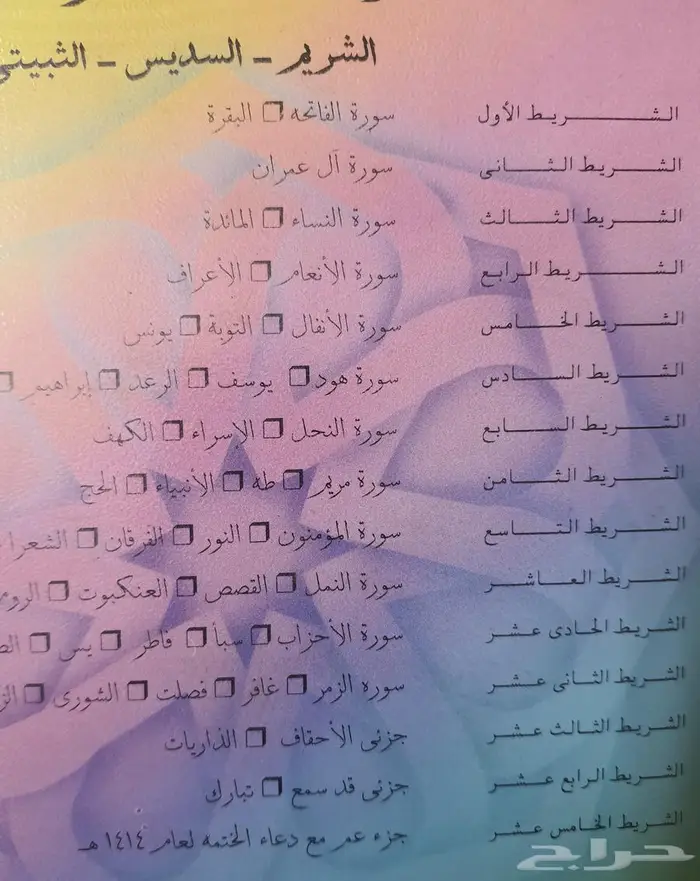 الشريم - السديس - الثبيتي
الشريط الأول سورة الفاتحه □ البقرة
الشريط الثانى سورة آل عمران
الشريط الثالث سورة النساء □ المائدة
الشريط الرابع سورة الأنعام □ الأعراف
الشريط الخامس سورة الأنفال □ التوبة □ يونس
الشريط السادس سورة هود □ يوسف □ الرعد □ إبراهيم □
الشريط السابع سورة النحل □ الإسراء □ الكهف
الشريط الثامن سورة مريم □ طه □ الأنبياء □ الحج
الشريط التاسع سورة المؤمنون □ النور □ الفرقان □ الشعرا
الشريط العاشر سورة النمل □ القصص □ العنكبوت □ الروم
الشريط الحادى عشر سورة الأحزاب □ سبأ □ فاطر □ يس □
الشريط الثانى عشر سوره الزمر □ غافر □ فصلت □ الشورى □
الشريط الثالث عشر جزئى الأحقاف □ الذاريات
الشريط الرابع عشر جزئى قد سمع □ تبارك
الشريط الخامس عشر جزء عم مع دعاء الختمه لعام ١٤١٤ هـ
حراج